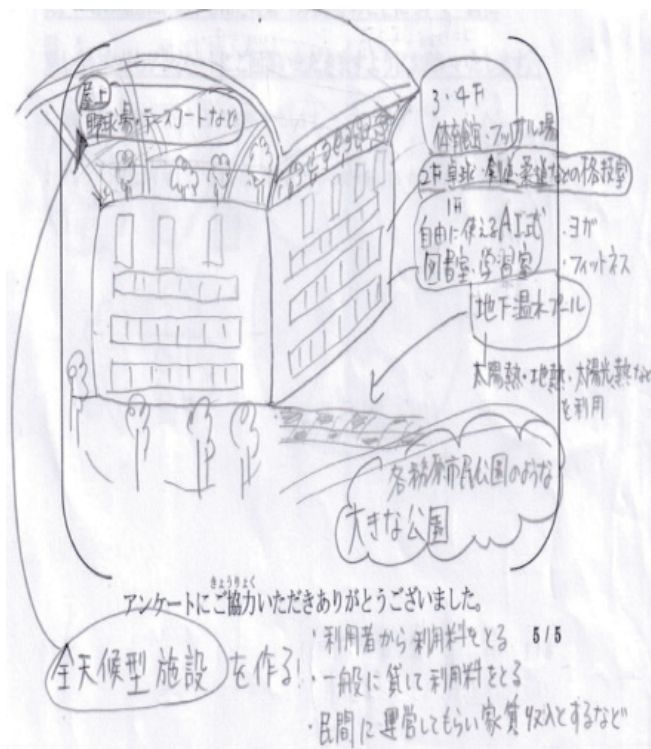 屋上
野球場・テニスコートなど
3・4F
体育館・フットサル場
2F 卓球・剣道・柔道などの格技室
1F
自由に使えるAI式
図書室・学習室
・ヨガ
・フィットネス
地下温水プール
太陽熱・地熱・太陽光熱など
を利用
各務原市民公園のような
大きな公園
きょうりょく
アンケートにご協力いただきありがとうございました。
5/5
全天候型施設を作る!
・利用者から利用料をとる
・一般に貸して利用料をとる
・民間に運営してもらい家賃収入とするなど